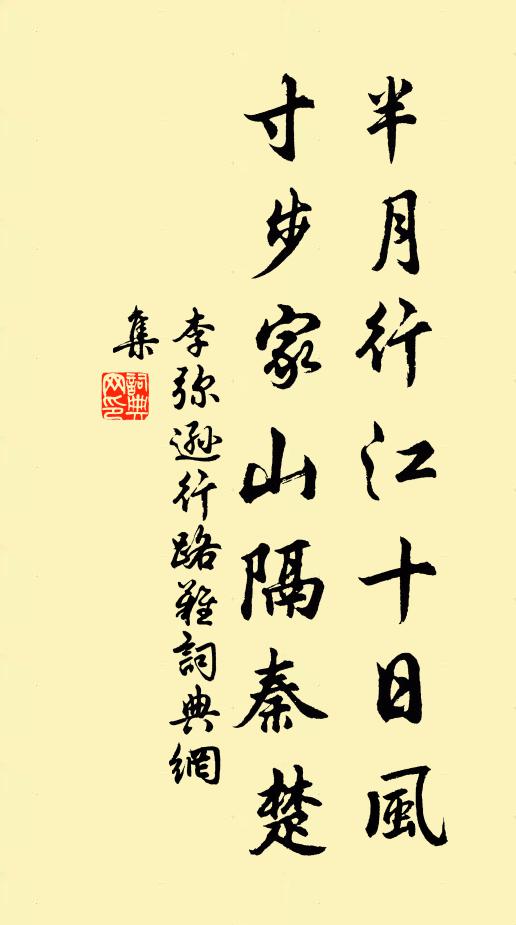 半月行江十日風
寸步家山隔秦楚
李弥遜行路難詞典網
集
詞典网印